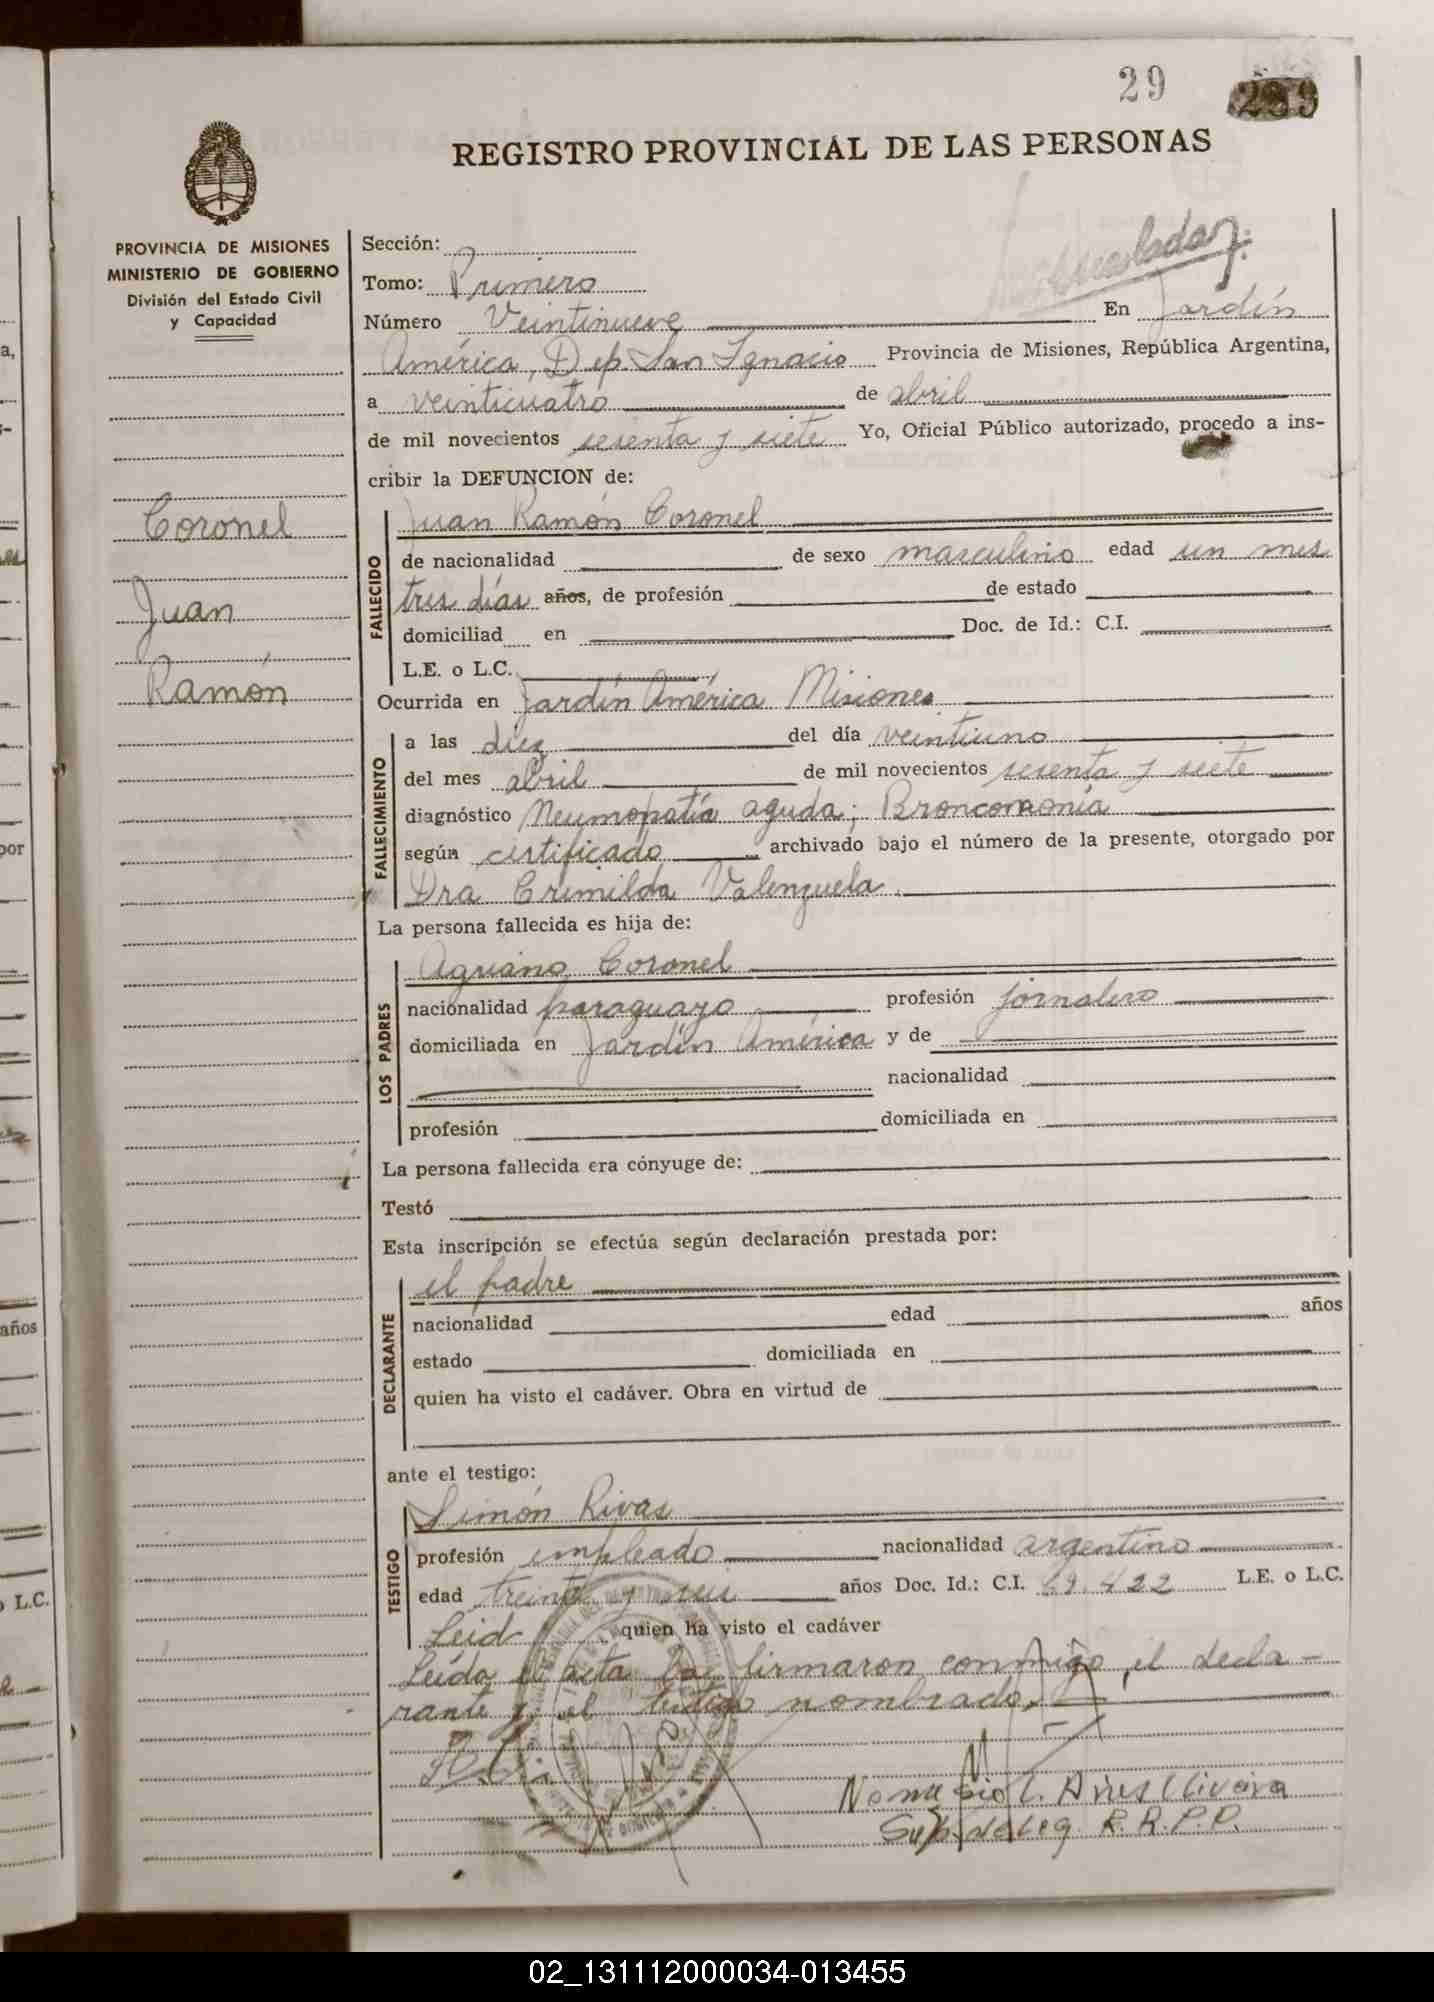 29
REGISTRO PROVINCIAL DE LAS PERSONAS
PROVINCIA DE MISIONES
MINISTERIO DE GOBIERNO
División del Estado Civil
y Capacidad
Coronel
Juan
Ramón
Sección:
Tomo: Primero
Número Veintinueve En Jardín
América, Dep. San Ignacio Provincia de Misiones, República Argentina,
a veinticuatro de abril
de mil novecientos sesenta y siete Yo, Oficial Público autorizado, procedo a ins-
cribir la DEFUNCION de:
FALLECIDO
Juan Ramón Coronel
de nacionalidad de sexo masculino edad un mes
tres días años, de profesión de estado
domiciliad en Doc. de Id.: C.I.
L.E. o L.C.
Ocurrida en Jardín América Misiones
FALLECIMIENTO
a las diez del día veintiuno
del mes abril de mil novecientos sesenta y siete
diagnóstico Neumopatía aguda; Broncomonía
según certificado archivado bajo el número de la presente, otorgado por
Dra. Crimilda Valenzuela.
La persona fallecida es hija de:
LOS PADRES
Coronel
nacionalidad paraguayo profesión jornalero
domiciliada en Jardín América y de
nacionalidad
profesión domiciliada en
La persona fallecida era cónyuge de:
Testó
Esta inscripción se efectúa según declaración prestada por:
DECLARANTE
el padre
nacionalidad edad años
estado domiciliada en
quien ha visto el cadáver. Obra en virtud de
ante el testigo:
TESTIGO
Simón Rivas
profesión empleado nacionalidad argentino
edad treinta y seis años Doc. Id.: C.I. 69.422 L.E. o L.C.
Leid quien ha visto el cadáver
Leída el acta la firmaron conmigo, el decla-
rante y el testigo nombrado.
Sub deleg. R.R.P.P.
02_131112000034-013455